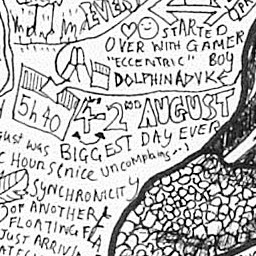 EVERY
STARTED
OVER WITH GAMER
"ECCENTRIC" BOY
DOLPHINADVK
5h 40
4-2ND AUGUST
gust was BIGGEST DAY EVER
C HOURS (NICE UNCOMPLAINS
SYNCHRONICITY
OF ANOTHER
FLOATING
JUST ARRIV